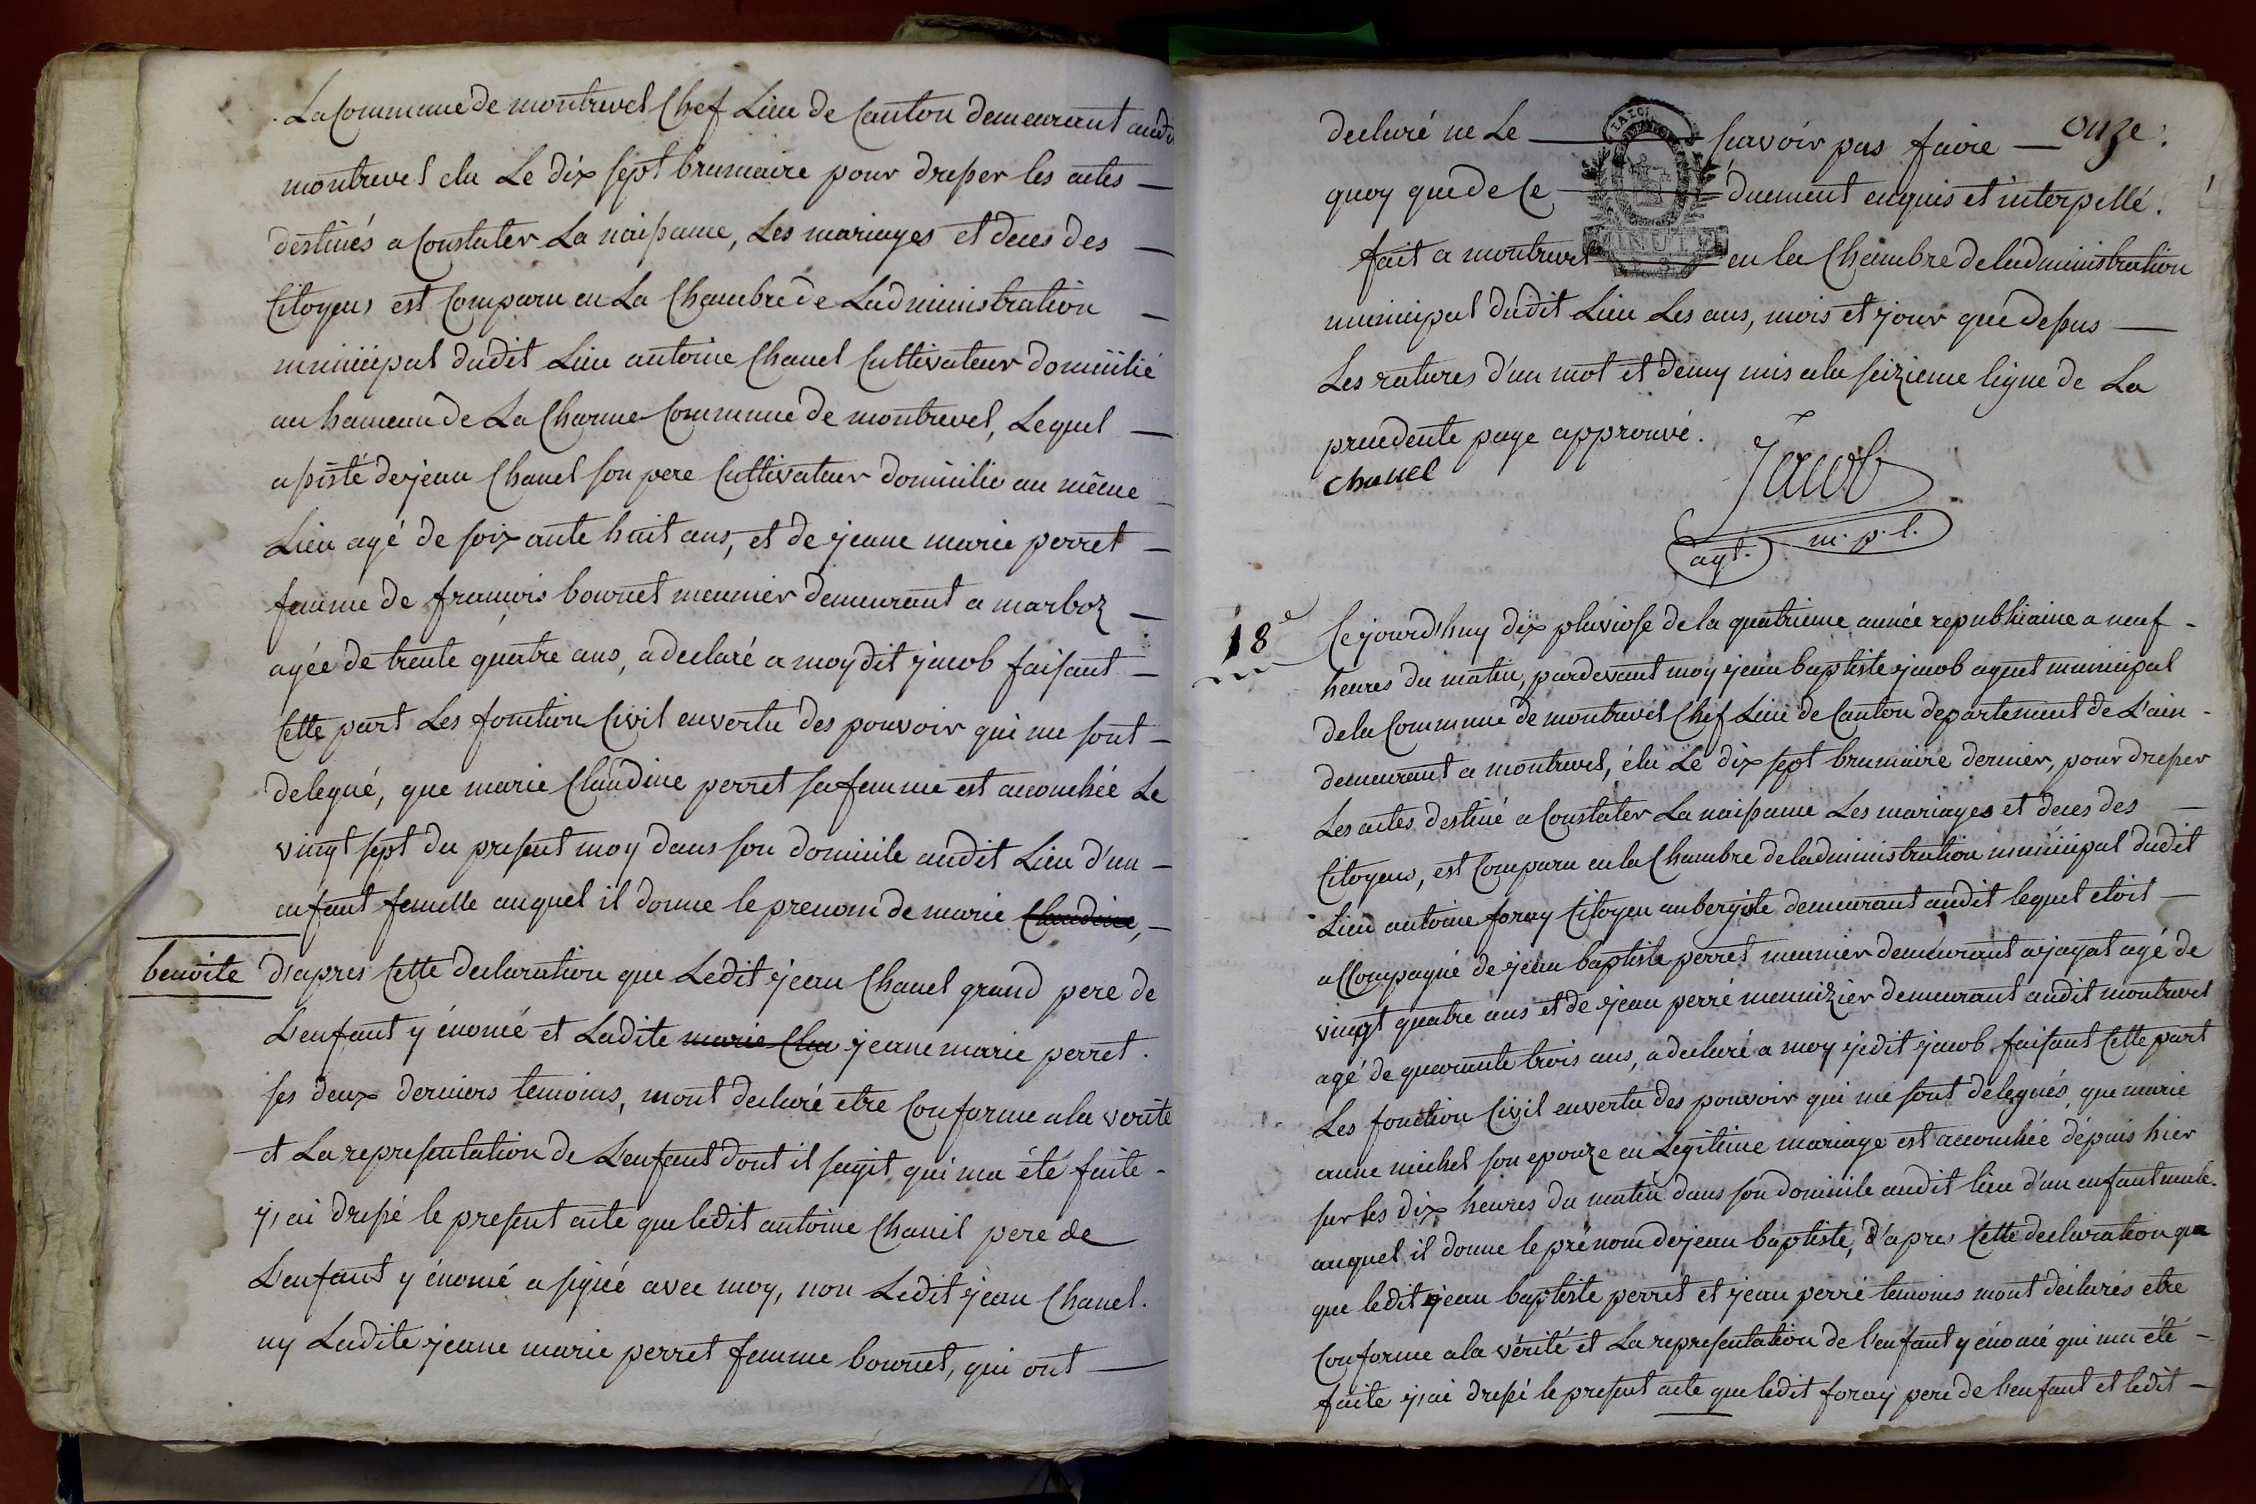 La Commune de montrevel Chef Lieu de Canton demeurant audit
montrevel elu Le dix sept brumaire pour dresser les actes
destinés a Constater La naissance, Les mariages et deces des
Citoyens est Comparu en La Chambre de Ladministration
municipal dudit Lieu antoine Chanel Cultivateur domicilié
au hameau de La Charme Commune de montrevel, Lequel
assisté de jean Chanel son pere Cultivateur domicilié au même
Lieu agé de soixante huit ans, et de jeane marie perret
femme de francois bournet meunier demeurant a marboz
agée de trente quatre ans, a declaré a moy dit jacob faisant
Cette part Les fonction Civil en vertu des pouvoir qui me sont
delegué, que marie Claudine perret sa femme est accouchée Le
vingt sept du present moy dans son domicile audit Lieu d'un
enfant femelle auquel il donne le prenom de marie Claudine,
benoite d'apres Cette declaration que Ledit jean Chanel grand pere de
L'enfant y énomé et Ladite marie Clau jeane marie perret.
ses deux derniers temoins, m'ont declaré etre Conforme a la verité
et La representation de L'enfant dont il sagit qui ma été faite
j'ai dressé le present acte que ledit antoine Chanel pere de
L'enfant y énomé a signé avec moy, non Ledit jean Chanel.
ny Ladite jeane marie perret femme bournet, qui ont
onze.
declaré ne Le scavoir pas faire
LA LOI
quoy que de Ce duement enquis et interpellé.
MINUTE
fait a montrevel en la Chambre de ladministration
municipal dudit Lieu Les ans, mois et jour que dessus
Les ratures d'un mot et demy mis a la seizieme ligne de La
precedente page approuvé.
chanel Jacob
agt. m.p.l.
18e Ce jourd'huy dix pluviose de la quatrieme année republicaine a neuf
heures du matin, pardevant moy jean baptiste jacob agent municipal
de la Commune de montrevel Chef Lieu de Canton departement de L'ain
demeurant a montrevel, élu Le dix sept brumaire dernier, pour dresser
Les actes destiné a Constater La naissance Les mariages et deces des
Citoyens, est Comparu en la Chambre de ladministration municipal dudit
Lieu antoine foray Citoyen aubergiste demeurant audit lequel etoit
aCCompagné de jean baptiste perret meunier demeurant a jayat agé de
vingt quatre ans et de jean perré menuizier demeurant audit montrevel
agé de quarante trois ans, a declaré a moy jedit jacob faisant Cette part
Les fonction Civil en vertu des pouvoir qui me sont delegués, que marie
anne michel son epouze en Legitime mariage est accouchée dépuis hier
sur les dix heures du matin dans son domicile audit lieu d'un enfant male.
auquel il donne le prénom de jean baptiste, d'apres Cette declaration que
que ledit jean baptiste perret et jean perré temoins mont déclarés etre
Conforme a la vérité et La representation de l'enfant y énomé qui ma été
faite j'ai dressé le present acte que ledit foray pere de l'enfant et ledit